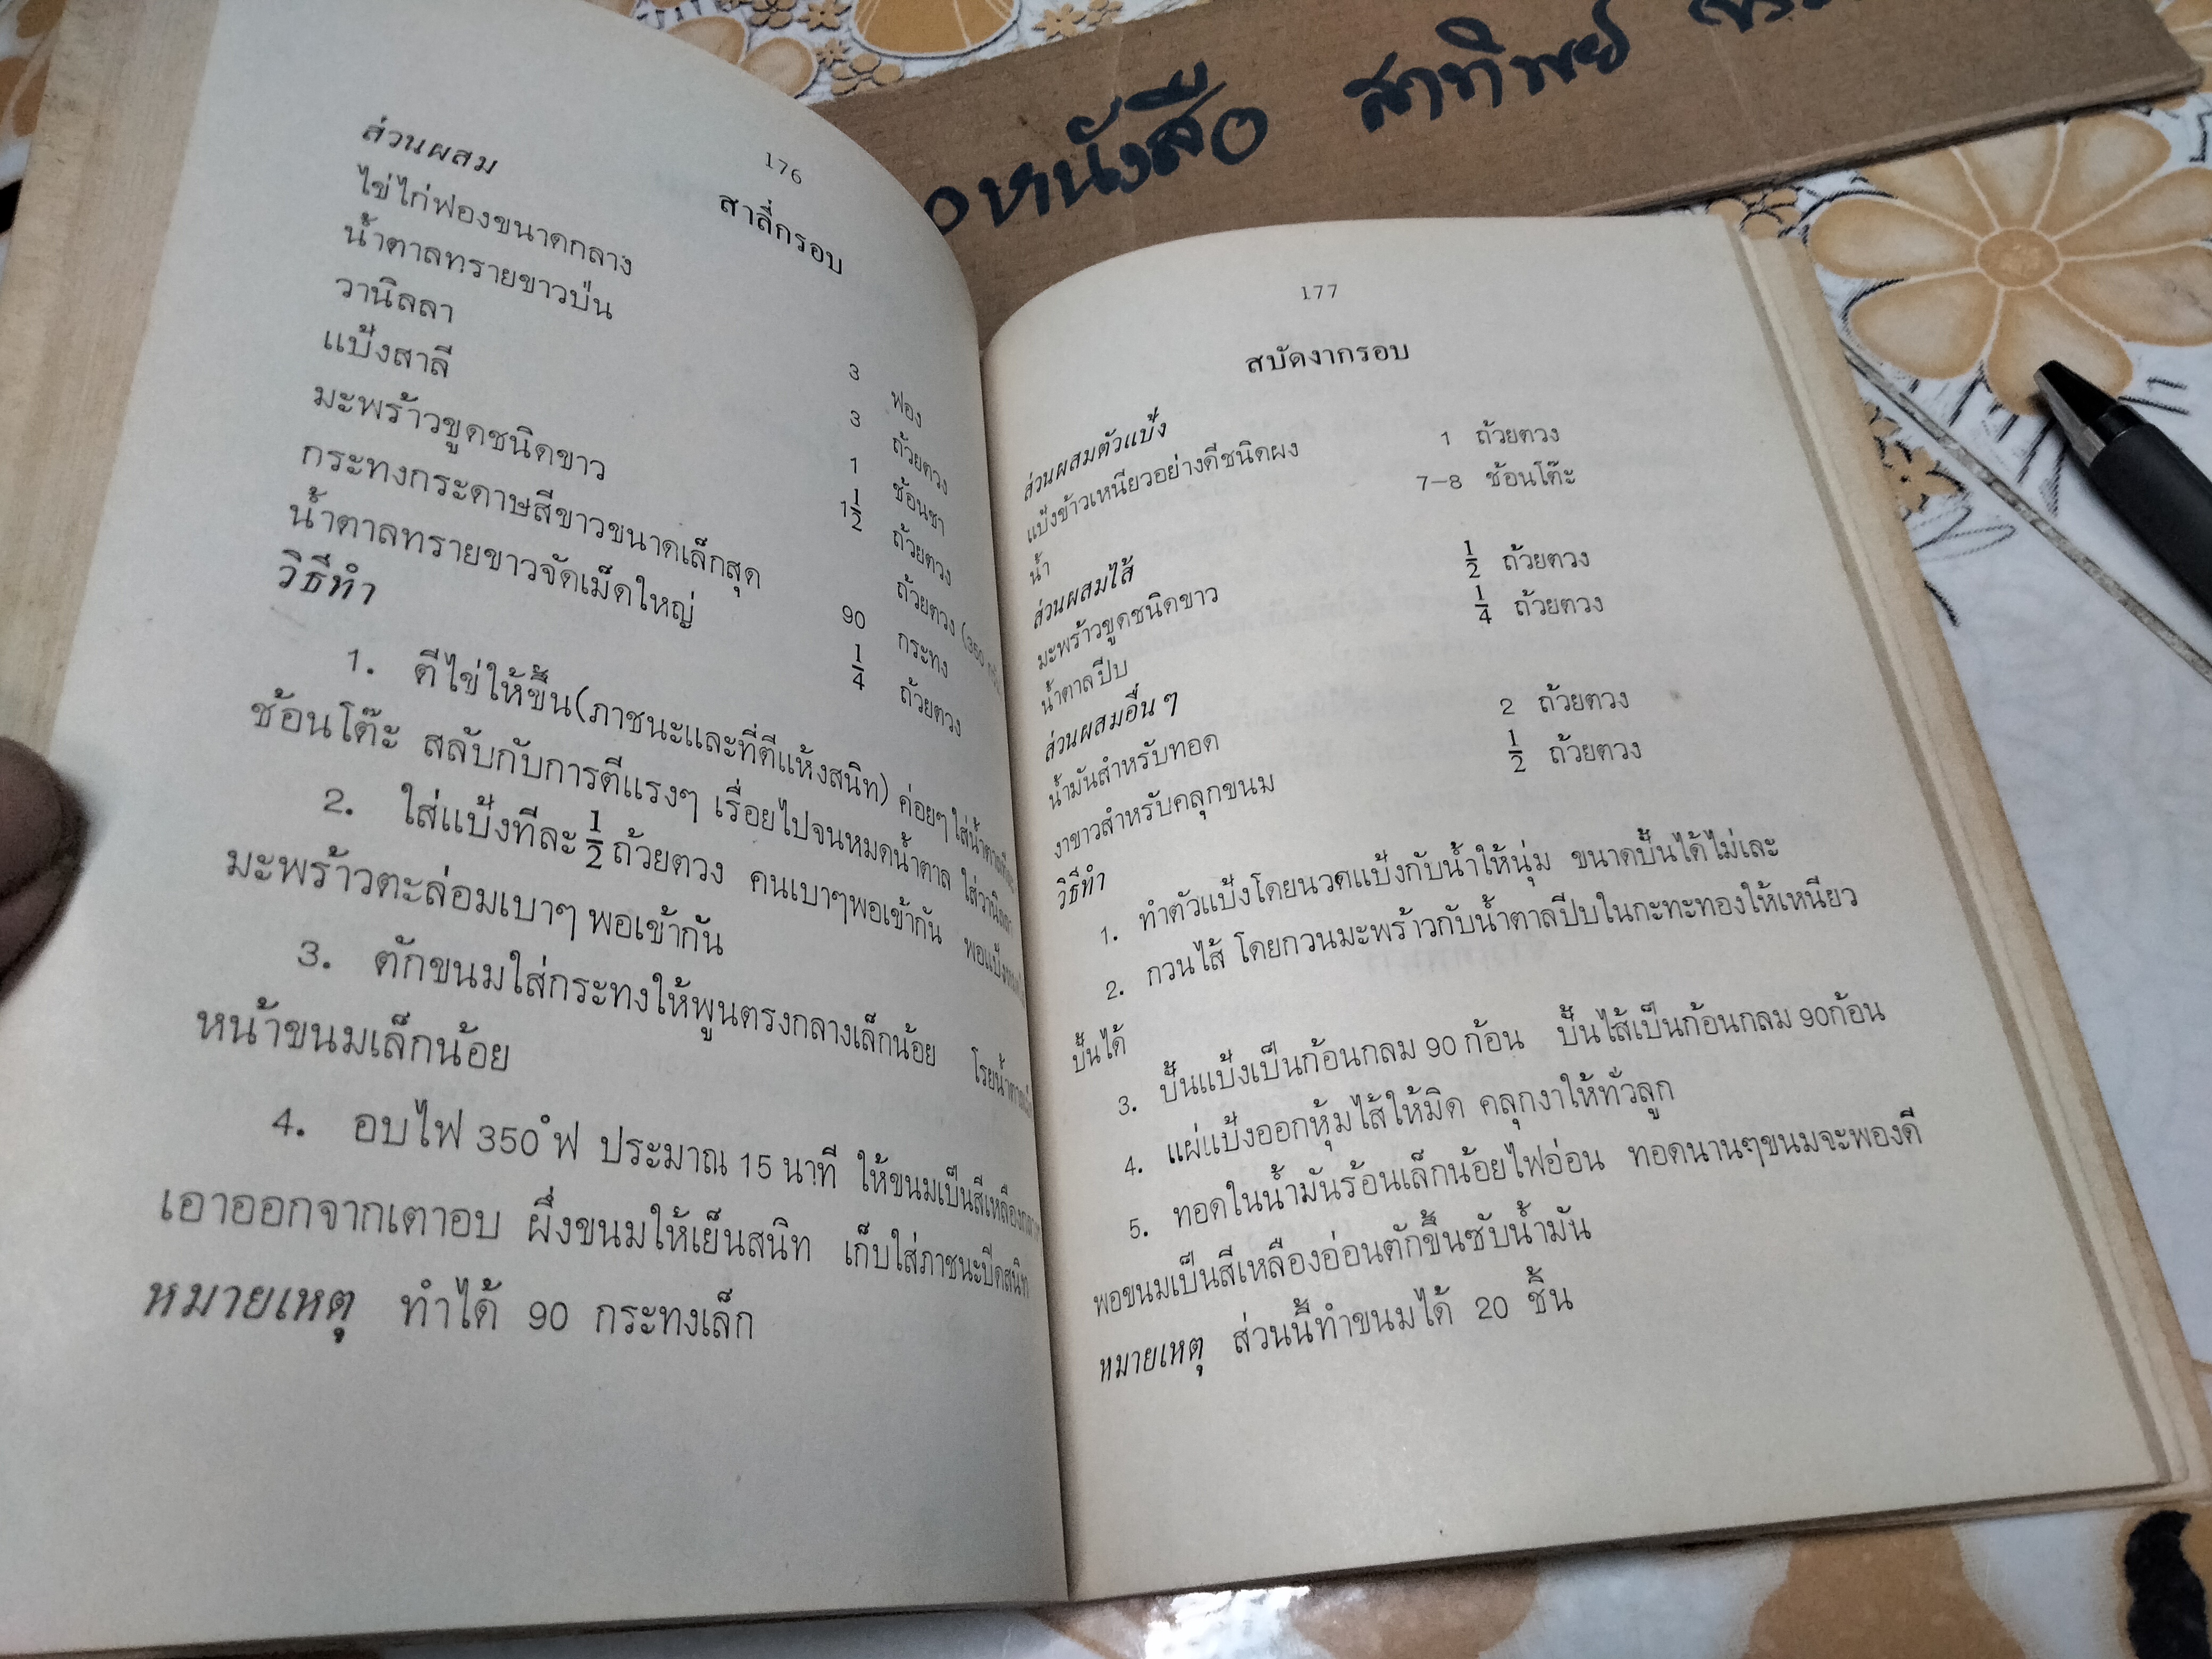 หนังสือ สาทิพย์
176
สาลี่กรอบ
ส่วนผสม
ไข่ไก่ฟองขนาดกลาง 3 ฟอง
น้ำตาลทรายขาวป่น 3 ถ้วยตวง
วานิลลา 1 ช้อนชา
แป้งสาลี 1½ ถ้วยตวง
มะพร้าวขูดชนิดขาว ถ้วยตวง (350
กระทงกระดาษสีขาวขนาดเล็กสุด 90 กระทง
น้ำตาลทรายขาวจัดเม็ดใหญ่ ¼ ถ้วยตวง
วิธีทำ
1. ตีไข่ให้ขึ้น(ภาชนะและที่ตีแห้งสนิท) ค่อยๆ ใส่น้ำตาลทีละ
ช้อนโต๊ะ สลับกับการตีแรงๆ เรื่อยไปจนหมดน้ำตาล ใส่วานิลลา
2. ใส่แป้งทีละ ½ ถ้วยตวง คนเบาๆพอเข้ากัน พอแป้ง
มะพร้าวตะล่อมเบาๆ พอเข้ากัน
3. ตักขนมใส่กระทงให้พูนตรงกลางเล็กน้อย โรยน้ำตาล
หน้าขนมเล็กน้อย
4. อบไฟ 350°ฟ ประมาณ 15 นาที ให้ขนมเป็นสีเหลือง
เอาออกจากเตาอบ ผึ่งขนมให้เย็นสนิท เก็บใส่ภาชนะปิดสนิท
หมายเหตุ ทำได้ 90 กระทงเล็ก
177
สบัดงากรอบ
ส่วนผสมตัวแป้ง
แป้งข้าวเหนียวอย่างดีชนิดผง 1 ถ้วยตวง
น้ำ 7–8 ช้อนโต๊ะ
ส่วนผสมไส้
มะพร้าวขูดชนิดขาว ½ ถ้วยตวง
น้ำตาลปีบ ¼ ถ้วยตวง
ส่วนผสมอื่น ๆ
น้ำมันสำหรับทอด 2 ถ้วยตวง
งาขาวสำหรับคลุกขนม ½ ถ้วยตวง
วิธีทำ
1. ทำตัวแป้งโดยนวดแป้งกับน้ำให้นุ่ม ขนาดปั้นได้ไม่เละ
2. กวนไส้ โดยกวนมะพร้าวกับน้ำตาลปีบในกะทะทองให้เหนียว
ปั้นได้
3. ปั้นแป้งเป็นก้อนกลม 90 ก้อน ปั้นไส้เป็นก้อนกลม 90ก้อน
4. แผ่แป้งออกหุ้มไส้ให้มิด คลุกงาให้ทั่วลูก
5. ทอดในน้ำมันร้อนเล็กน้อยไฟอ่อน ทอดนานๆขนมจะพองดี
พอขนมเป็นสีเหลืองอ่อนตักขึ้นซับน้ำมัน
หมายเหตุ ส่วนนี้ทำขนมได้ 20 ชิ้น